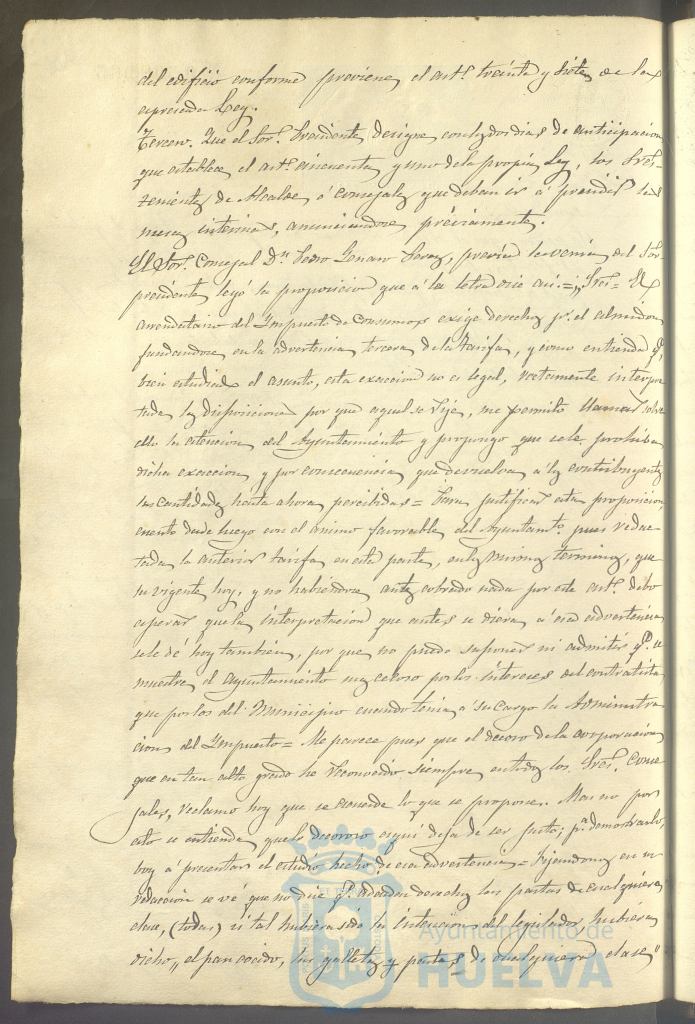 del edificio conforme previene el artº. treinta y siete de la
espresada Ley.
Tercero. Que el Sor. Presidente designe con los dos dias de anticipacion
que establece el artº. cincuenta y uno de la propia Ley, los Sres.
Tenientes de Alcalde ó Concejales que deban ir á presidir las
mesas interinas, anunciandose préviamente.
El Sor. Concejal Dn. Pedro Genaro Perez, prévia la venia del Sor.
presidente leyó la proposicion que á la letra dice asi: = "Sres = El
arrendatario del Impuesto de Consumos exige derechos pr. el almidon
fundandose en la advertencia tercera de la tarifa, y como entienda q.
bien estudiado el asunto, esta exaccion no es legal, rectamente interpre
tadas las disposiciones por que aquel se rije, me permito llamar sobre
ello la atencion del Ayuntamiento y propongo que se le prohiba
dicha exaccion y por consecuencia que devuelva á los contribuyentes
las cantidades hasta ahora percibidas = Para justificar esta proposicion,
cuento desde luego con el animo favorable del Ayuntamto. pues redac
tada la anterior tarifa en esta parte, en los mismos terminos, que
la vigente hoy, y no habiendose antes cobrado nada por este artº. debo
esperar que la interpretacion que antes se diera á esa advertencia
se le dé hoy tambien, por que no puedo suponer ni admitir q. se
muestre el Ayuntamiento mas celoso por los intereses del contratista
que por los del Municipio cuando tenia á su cargo la Administra
cion del Impuesto = Me parece pues que el decoro de la corporacion
que en tan alto grado he reconocido siempre en todos los Sres. Conce
jales, reclama hoy que se acuerde lo que se propone. Mas no por
esto se entienda que lo decoroso aquí deja de ser justo; pa. demostrarlo,
voy á presentar el estudio hecho de esa advertencia = Fijandonos en su
redaccion se vé que no dice q. adeudan derechos las pastas de cualquiera
clase, (todas) si tal hubiera sido la intencion del legislador hubiera
dicho "el pan cocido, las galletas y pastas de cualquiera clase"
Ayuntamiento de
HUELVA